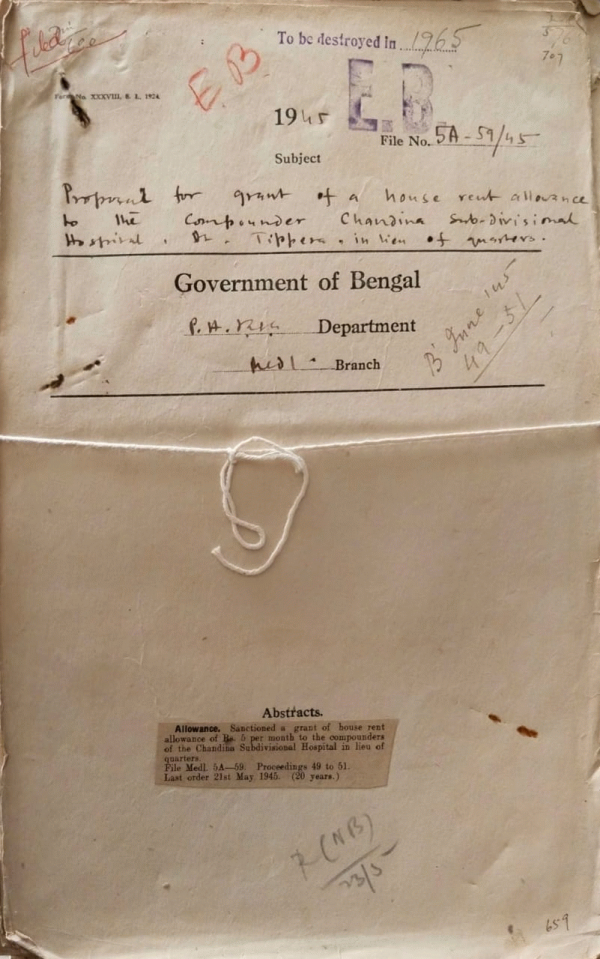 Filed
To be destroyed in 1965
E B
E.B.
Form No. XXXVIII, S. L. 1924.
1945
File No. 5A-59/45
Subject
Proposal for grant of a house rent allowance
to the Compounder Chandina Sub-divisional
Hospital, Dt. Tippera, in lieu of quarters.
Government of Bengal
P.H. Department
Medl. Branch
B June '45
49-51
Abstracts.
Allowance. Sanctioned a grant of house rent
allowance of Rs. 5 per month to the compounders
of the Chandina Subdivisional Hospital in lieu of
quarters.
File Medl. 5A—59. Proceedings 49 to 51.
Last order 21st May 1945. (20 years.)
R (NB)
23/5
659